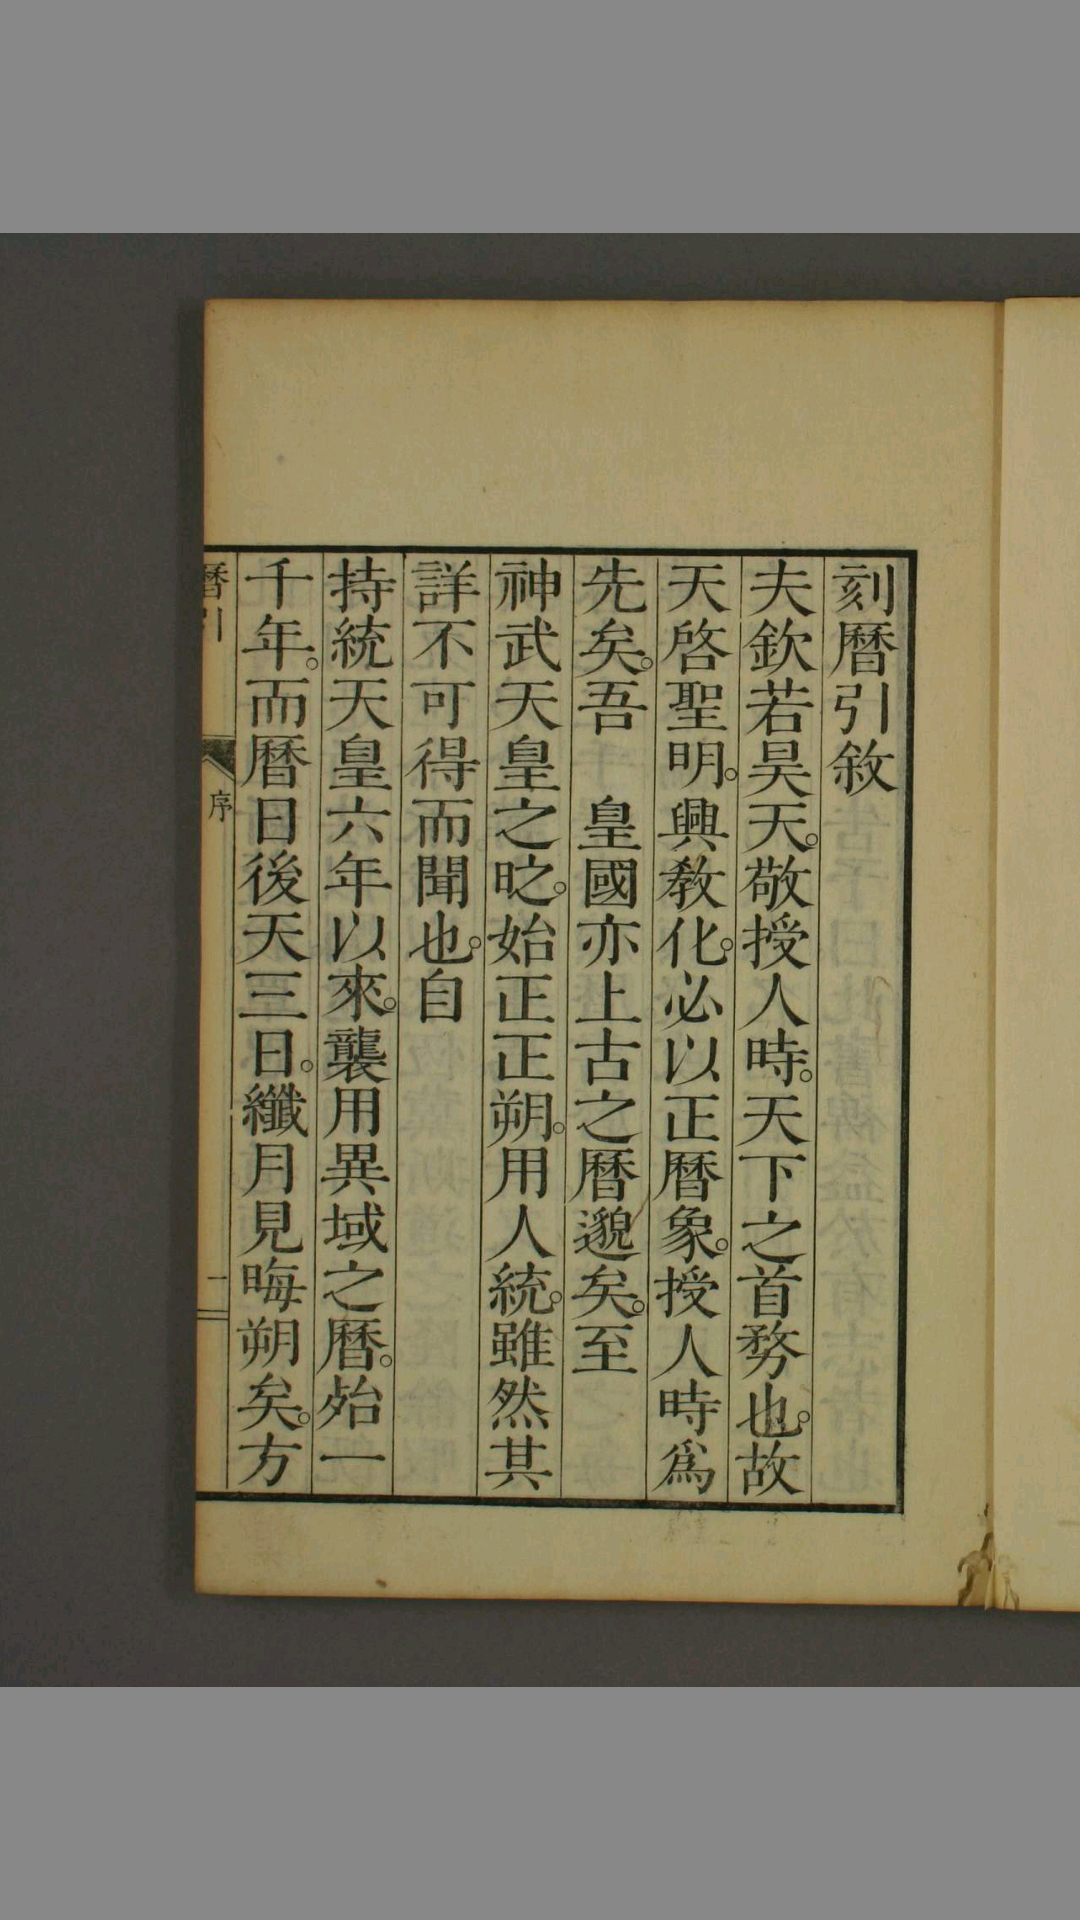 刻暦引敘
夫欽若昊天。敬授人時。天下之首務也。故
天啓聖明。興教化。必以正暦象。授人時爲
先矣。吾　皇國亦上古之暦邈矣。至
神武天皇之時。始正正朔。用人統。雖然其
詳不可得而聞也。自
持統天皇六年以來。襲用異域之暦。殆一
千年。而暦日後天三日。纖月見晦朔矣。方
暦引
序
一